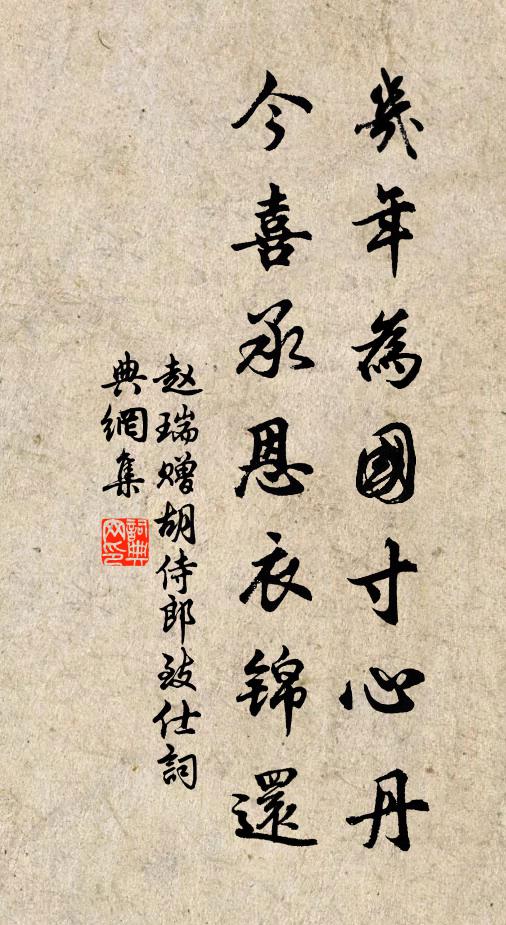 幾年為國寸心丹
今喜承恩衣錦還
赵瑞贈胡侍郎致仕詞
典網集
詞典網印